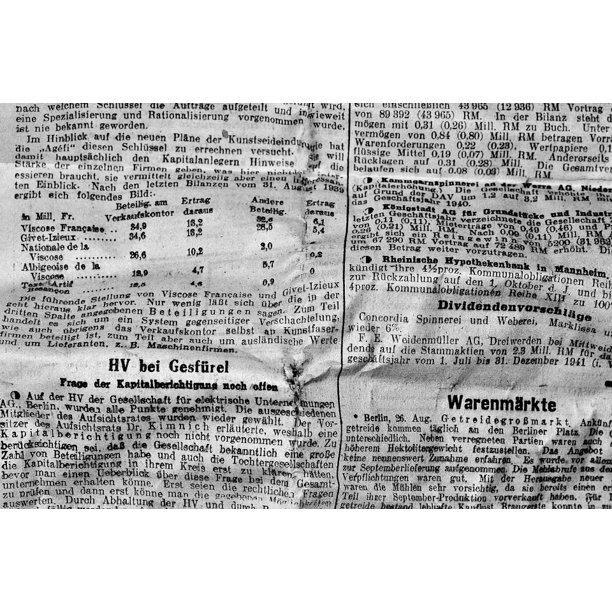 nach welchem Schlüssel die Aufträge aufgeteilt und wird,
eine Spezialisierung und Rationalisierung vorgenommen inwieweit
ist nie bekannt geworden.
Im Hinblick auf die neuen Pläne der Kunstseidenindu
die „Agéfi" diesen Schlüssel zu errechnen versucht. hat
damit hauptsächlich den Kapitalanlegern Hinweise
Stärke der einzelnen Firmen geben, was hier nicht
essieren braucht, sie ermittelt gleichzeitig aber einen
ten Einblick. Nach den letzten Bilanzen vom 31. August 1939
ergibt sich folgendes Bild:
Beteilig. am Ertrag Andere Ertrag
in Mill. Fr. Verkaufskontor daraus Beteilig. daraus
Viscose Française 34,9 18,2 6,1
Givet-Izieux 34,6 18,2 28,5 5,4
Nationale de la
Viscose 26,6 10,2 2,0
Albigeoise de la
Viscose 18,9 4,7 5,7 0
4,6 0,9
Die führende Stellung von Viscose Française und Givet-Izieux
geht hieraus klar hervor. Nur wenig läßt sich über die in der
dritten Spalte angegebenen Beteiligungen sagen. Zum Teil
handelt es sich um ein System gegenseitiger Verschachtelung,
wie auch übrigens das Verkaufskontor selbst an Kunstfaser-
firmen beteiligt ist, zum Teil aber auch um ausländische Werte
und um Lieferanten z. B. Maschinenfirmen.
HV bei Gesfürel
Frage der Kapitalberichtigung noch offen
Auf der HV der Gesellschaft für elektrische Unternehmungen
AG., Berlin, wurden alle Punkte genehmigt. Die ausgeschiedenen
Mitglieder des Aufsichtsrates wurden wieder gewählt. Der Vor-
sitzer des Aufsichtsrats Dr. Kimmich erläuterte, weshalb
Kapitalberichtigung noch nicht vorgenommen wurde
berücksichtigen sei, daß die Gesellschaft bekanntlich eine große
Zahl von Beteiligungen habe und auch die Tochtergesellschaften
die Kapitalberichtigung in ihrem Kreis erst zu klären
bevor man einen Überblick über diese Frage bei dem Gesamt-
unternehmen erhalten könne. Erst seien die rechtlichen Fragen
zu prüfen und dann erst könne man die gegebenen
auswerten. Durch Abhaltung der HV und durch
sich einschließlich 43 965 (12 936) RM Vortrag
von 89 392 (43 965) RM. In der Bilanz steht
mögen mit 0,31 (0,26) Mill. RM zu Buch. Unter
vermögen von 0,84 (0,80) Mill. RM betragen Vorr
Warenforderungen 0,22 (0,28), Wertpapiere 0
flüssige Mittel 0,19 (0,07) Mill. RM. Andererseits
Rücklagen auf 0,31 (0,28) Mill. RM. Die Gesamtve
laufen sich auf 0,08 (0,08) Mill. RM.
Kammgarnspinnerei AG, Niede
(Kapitalerhöhung).
auf Grund der DAV um 3,2 Mill. RM
das Geschäftsjahr 1940.
Königstadt AG für Grundstücke und Indust
letzten Geschäftsjahr verzeichnete die Gesellschaft
0,11 (0,11), Mieterträge von 0,49 (0,48) und
Ertrag von 0,00 (0,11) Mill. RM.
ergibt sich ein Reingewinn von 5200 (31 962)
um 67 290 RM Vortrag auf 72 489 RM erhöht. Die
wegen weiter vorzutragen.
Rheinische Hypothekenbank in Mannheim
kündigt ihre 4½proz. Kommunalobligationen Reihe
zur Rückzahlung auf den 1. Oktober d. J.
4proz. Kommunalobligationen Reihe XIII
Dividendenvorschläge
Concordia Spinnerei und Weberei, Marklissa
wieder 6%.
F. E. Weidenmüller AG, Dreiwerden bei Mittweida
dend auf die Stammaktien von 2,3 Mill. RM für das
geschäftsjahr vom 1. Juli bis 31. Dezember 1941 (i.
Warenmärkte
• Berlin, 26. Aug. Getreidegroßmarkt. Ankünf
getreide kommen täglich an den Berliner Platz. Die
unterschiedlich. Neben verregneten Partien waren auch
höherem Hektolitergewicht festzustellen. Das Angebot
keine nennenswert Zunahme erfahren. Es wurde vor allem
zur Septemberlieferung aufgenommen. Die Mehlabrufe aus der
Verpflichtungen waren gut. Mit der Herausgabe neuer
waren die Mühlen sehr vorsichtig, da sie bereits einen er
Teil ihrer September-Produktion vorverkauft haben. Für
getreide bestand lebhafte Kauflust. Braugerste konnte in